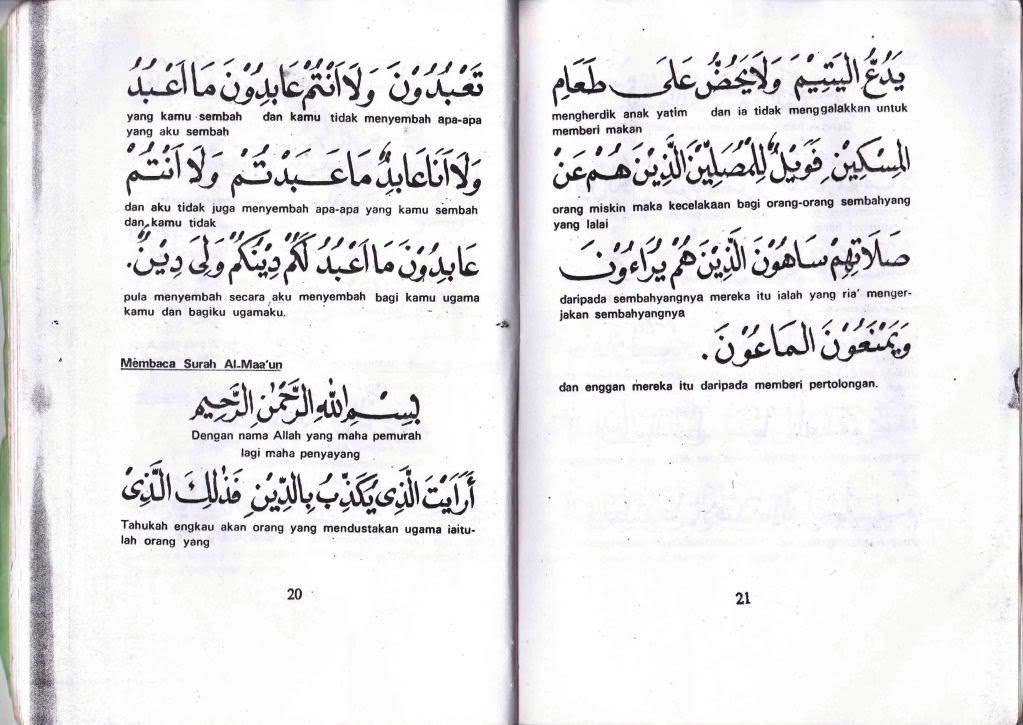 تَعْبُدُوْنَ وَلَا اَنْتُمْ عَابِدُوْنَ مَا اَعْبُدُ
yang kamu sembah dan kamu tidak menyembah apa-apa
yang aku sembah
وَلَا اَنَا عَابِدٌ مَا عَبَدْتُمْ وَلَا اَنْتُمْ
dan aku tidak juga menyembah apa-apa yang kamu sembah
dan kamu tidak
عَابِدُوْنَ مَا اَعْبُدُ لَكُمْ دِيْنُكُمْ وَلِىَ دِيْنِ.
pula menyembah secara aku menyembah bagi kamu ugama
kamu dan bagiku ugamaku.
Membaca Surah Al-Maa'un
بِسْمِ اللهِ الرَّحْمٰنِ الرَّحِيْمِ
Dengan nama Allah yang maha pemurah
lagi maha penyayang
أَرَاَيْتَ الَّذِى يُكَذِّبُ بِالدِّيْنِ فَذٰلِكَ الَّذِىْ
Tahukah engkau akan orang yang mendustakan ugama iaitu-
lah orang yang
20
يَدُعُّ الْيَتِيْمَ وَلَا يَحُضُّ عَلَى طَعَامِ
mengherdik anak yatim dan ia tidak menggalakkan untuk
memberi makan
الْمِسْكِيْنِ فَوَيْلٌ لِلْمُصَلِّيْنَ الَّذِيْنَ هُمْ عَنْ
orang miskin maka kecelakaan bagi orang-orang sembahyang
yang lalai
صَلَاتِهِمْ سَاهُوْنَ الَّذِيْنَ هُمْ يُرَاءُوْنَ
daripada sembahyangnya mereka itu ialah yang ria' menger-
jakan sembahyangnya
وَيَمْنَعُوْنَ الْمَاعُوْنَ.
dan enggan mereka itu daripada memberi pertolongan.
21